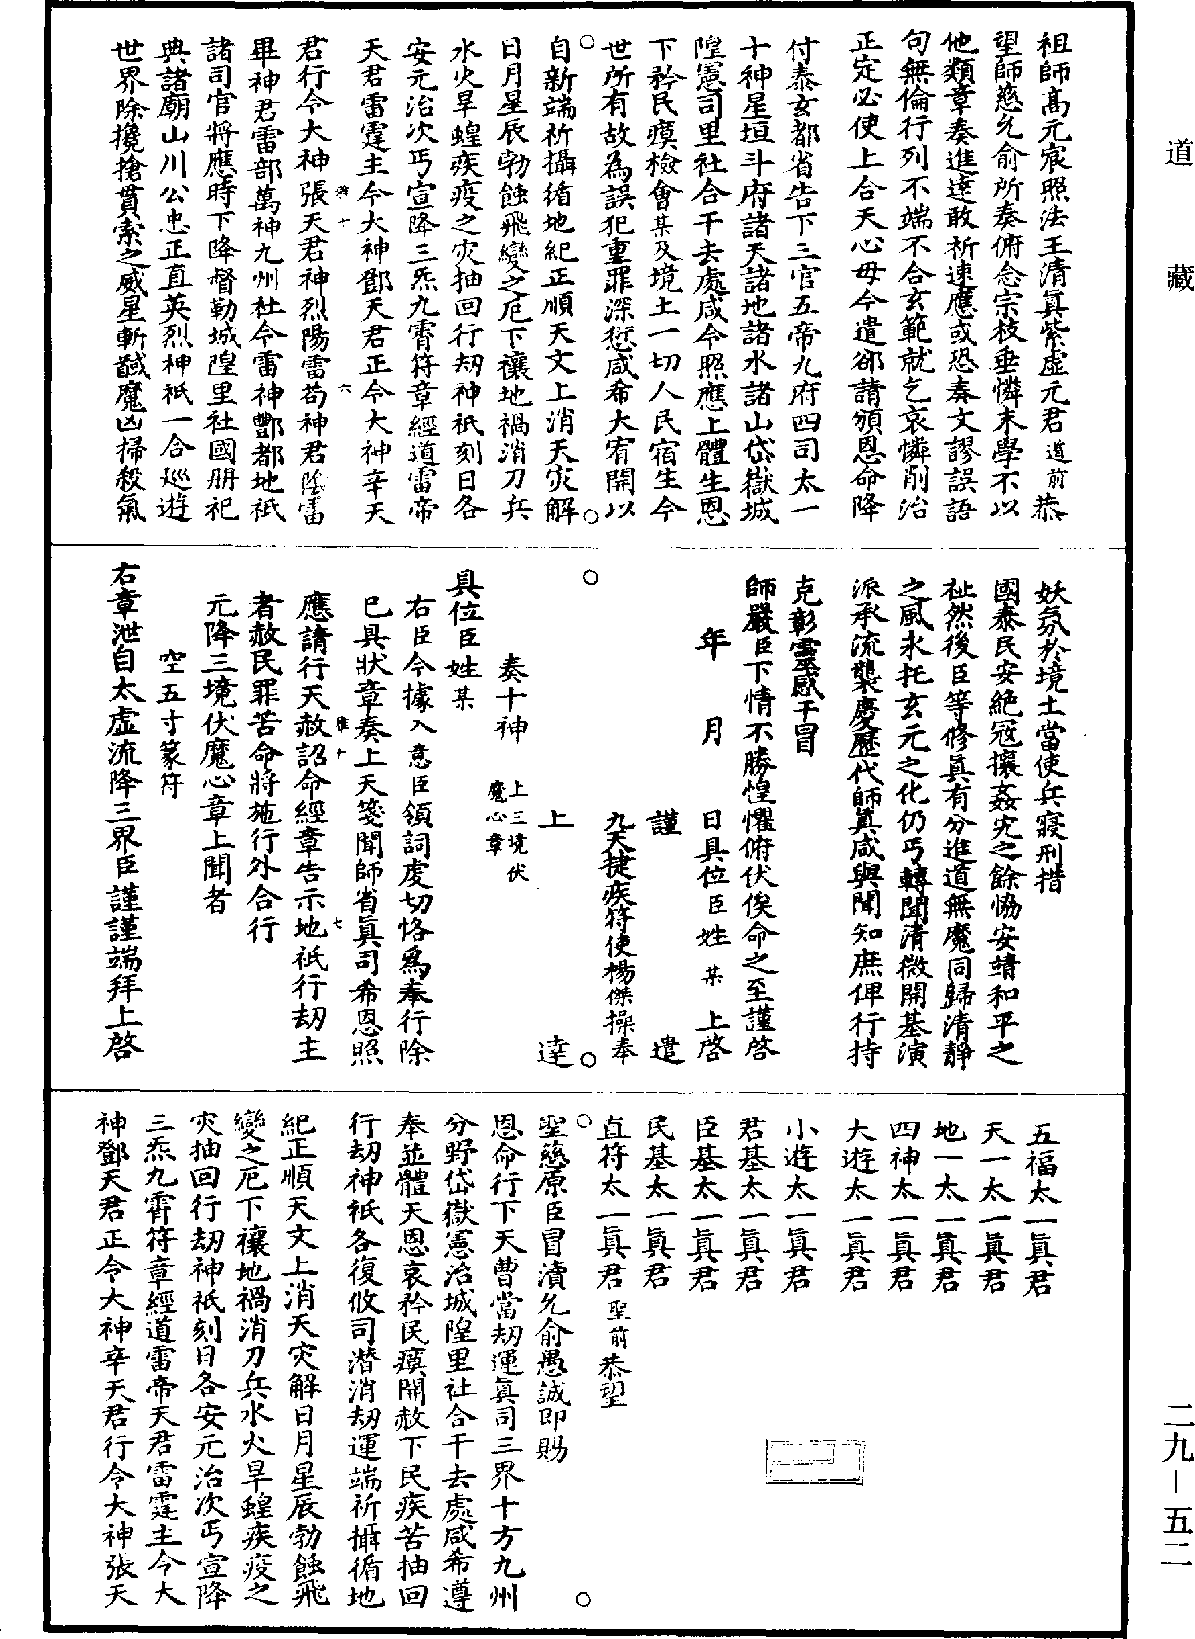 道藏
祖師高元宸照法王清真紫虛元君道前恭
望師慈允俞所奏俯念宗枝垂憐末學不以
他類章奏進達敢祈速應或恐奏文謬誤語
句無倫行列不端不合玄範就乞哀憐削治
正定必使上合天心毋令遣卻請頒恩命降
付泰玄都省告下三官五帝九府四司太一
十神星垣斗府諸天諸地諸水諸山岱嶽城
隍憲司里社合干去處咸令照應上體生恩
下矜民瘼檢會某及境土一切人民宿生今
世所有故為誤犯重罪深愆咸希大宥開以
自新端祈攝循地紀正順天文上消天災解
日月星辰勃蝕飛變之厄下禳地禍消刀兵
水火旱蝗疾疫之災抽回行劫神祇刻日各
安元治次丐宣降三炁九霄符章經道雷帝
天君雷霆主令大神鄧天君正令大神辛天
君行令大神張天君神烈陽雷苟神君陰雷
畢神君雷部萬神九州社令雷神酆都地祇
諸司官將應時下降督勒城隍里社國冊祀
典諸廟山川公忠正直英烈神祇一合巡遊
世界除攙搶貫索之威星斬馘魔凶掃殺氣
妖氛於境土當使兵寢刑措
國泰民安絕寇攘姦宄之餘協安靖和平之
祉然後臣等修真有分進道無魔同歸清靜
之風永托玄元之化仍丐轉聞清微開基演
派承流襲慶歷代師真咸與聞知庶俾行持
克彰靈感干冒
師嚴臣下情不勝惶懼俯伏俟命之至謹啓
年 月 日具位臣姓 某 上啓
謹 遣
九天捷疾符使楊傑操奉
上 達
奏十神 上三境伏
魔心章
具位臣姓某
右臣今據入意臣領詞虔切恪為奉行除
已具狀章奏上天箋聞師省真司希恩照
應請行天赦詔命經章告示地祇行劫主
者赦民罪苦命將施行外合行
元降三境伏魔心章上聞者
空五寸篆符
右章泄自太虛流降三界臣謹謹端拜上啓
五福太一真君
天一太一真君
地一太一真君
四神太一真君
大遊太一真君
小遊太一真君
君基太一真君
臣基太一真君
民基太一真君
直符太一真君聖前恭望
聖慈原臣冒瀆允俞愚誠即賜
恩命行下天曹當劫運真司三界十方九州
分野岱嶽憲治城隍里社合干去處咸希遵
奉並體天恩哀矜民瘼開赦下民疾苦抽回
行劫神祇各復攸司潛消劫運端祈攝循地
紀正順天文上消天災解日月星辰勃蝕飛
變之厄下禳地禍消刀兵水火旱蝗疾疫之
災抽回行劫神祇刻日各安元治次丐宣降
三炁九霄符章經道雷帝天君雷霆主令大
神鄧天君正令大神辛天君行令大神張天
二九—五二